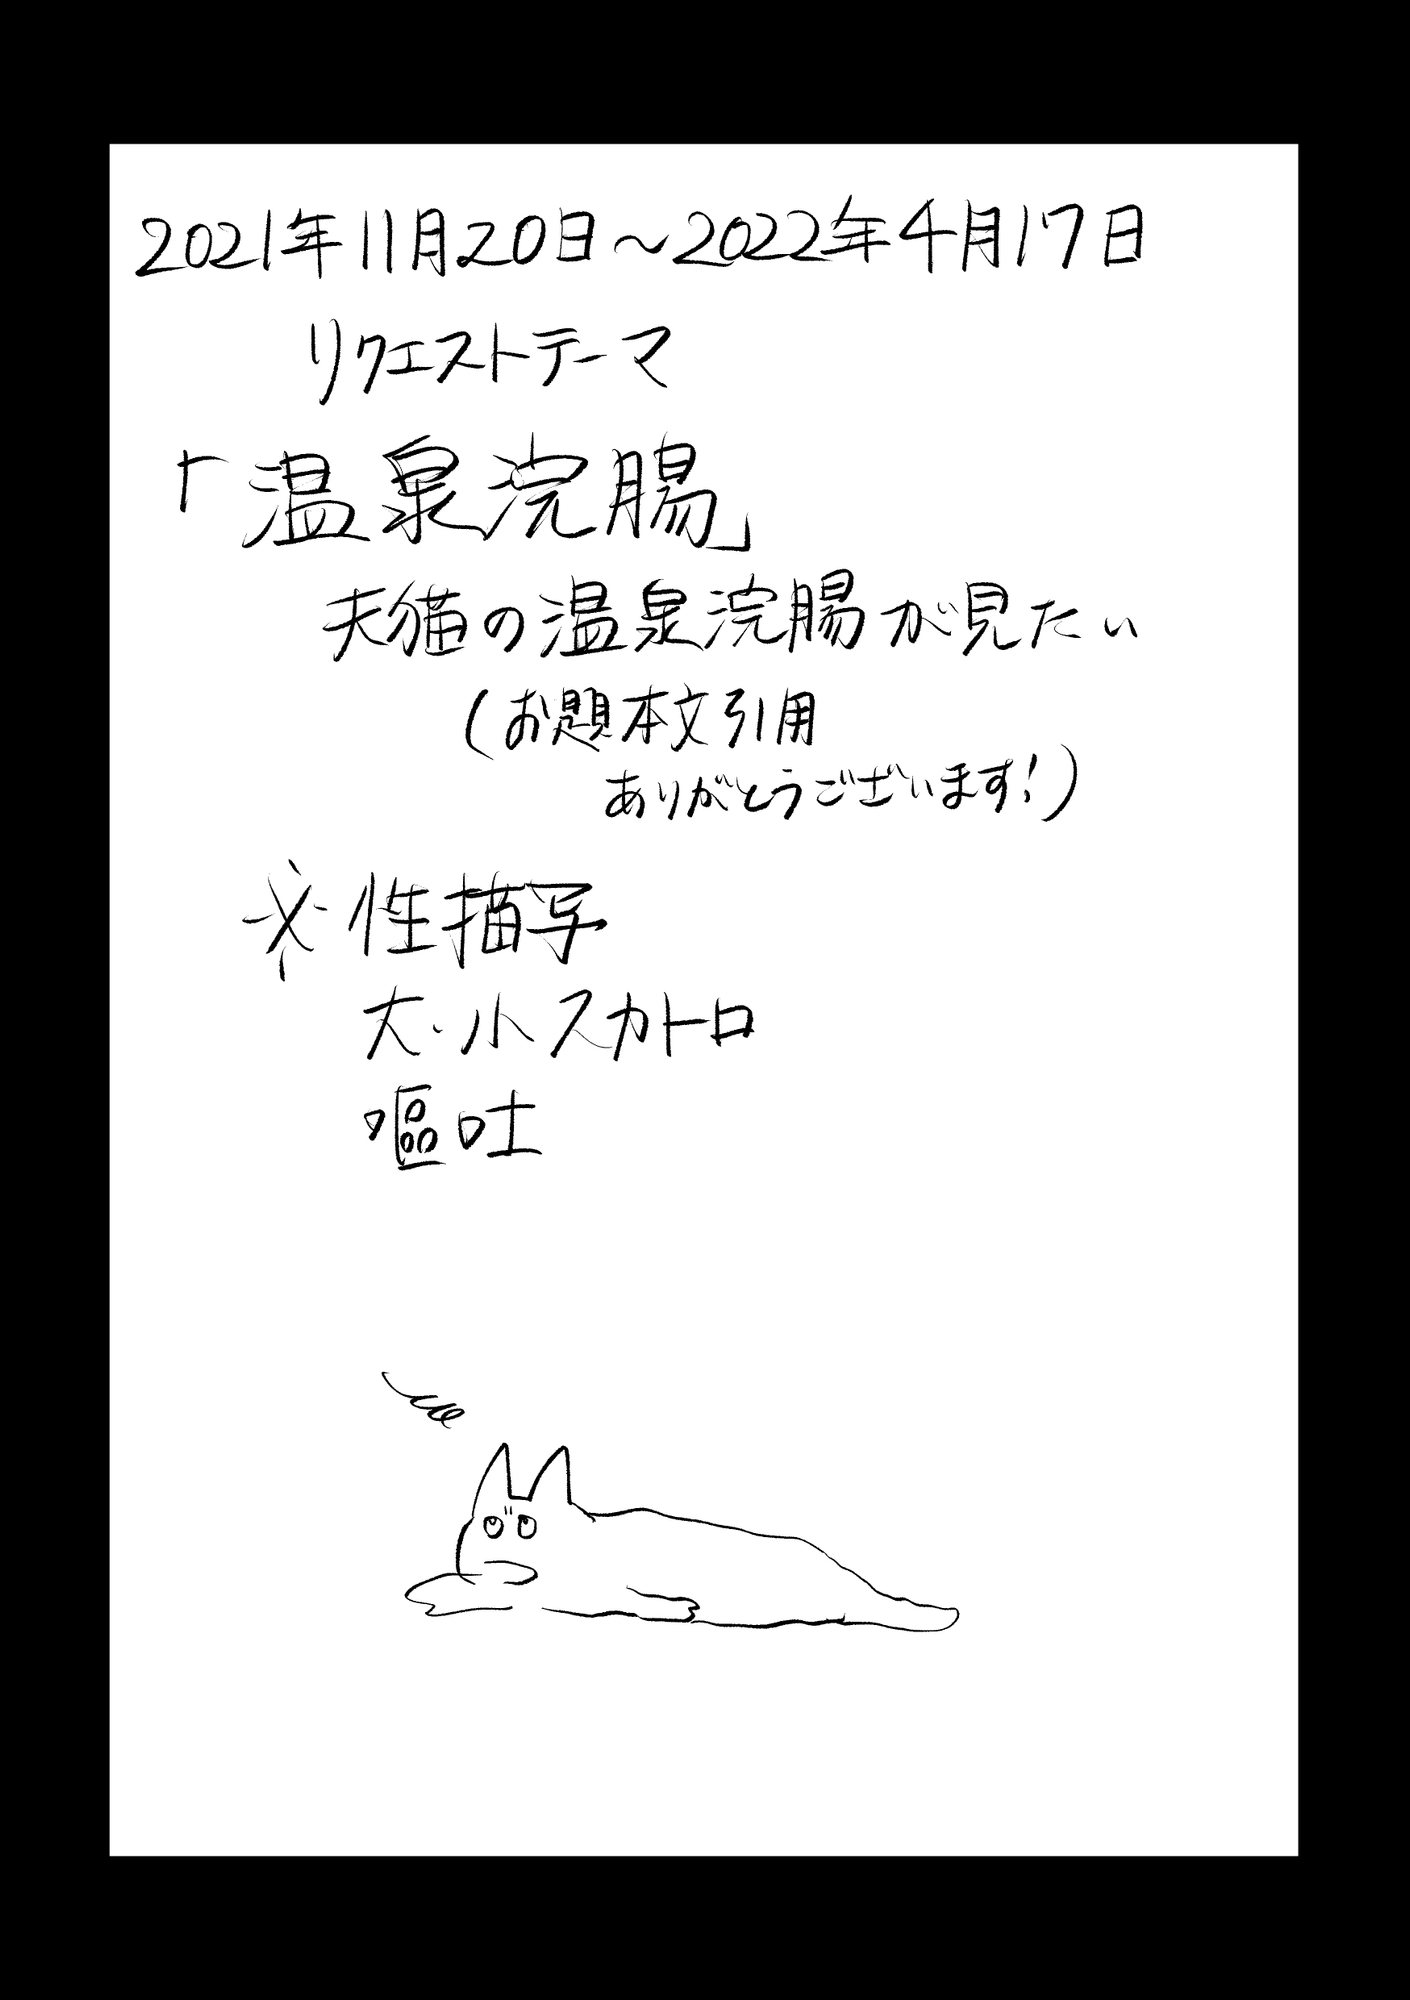 2021年11月20日～2022年4月17日
リクエストテーマ
「温泉浣腸」
天猫の温泉浣腸が見たい
(お題本文引用
ありがとうございます!)
※性描写
大・小スカトロ
嘔吐